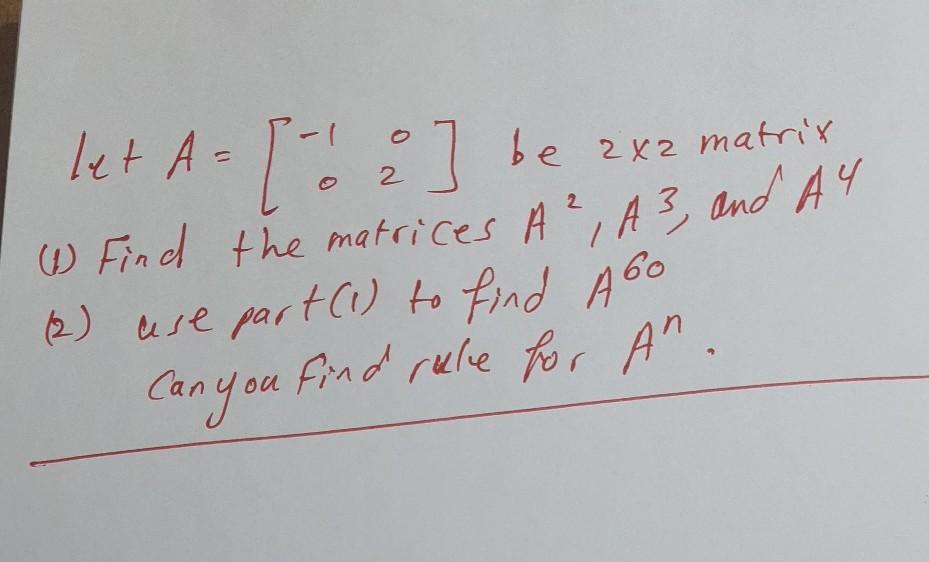 let A = [ -1 0
0 2 ] be 2x2 matrix
(1) Find the matrices A², A³, and A⁴
(2) use part(1) to find A⁶⁰
Can you find rule for Aⁿ.